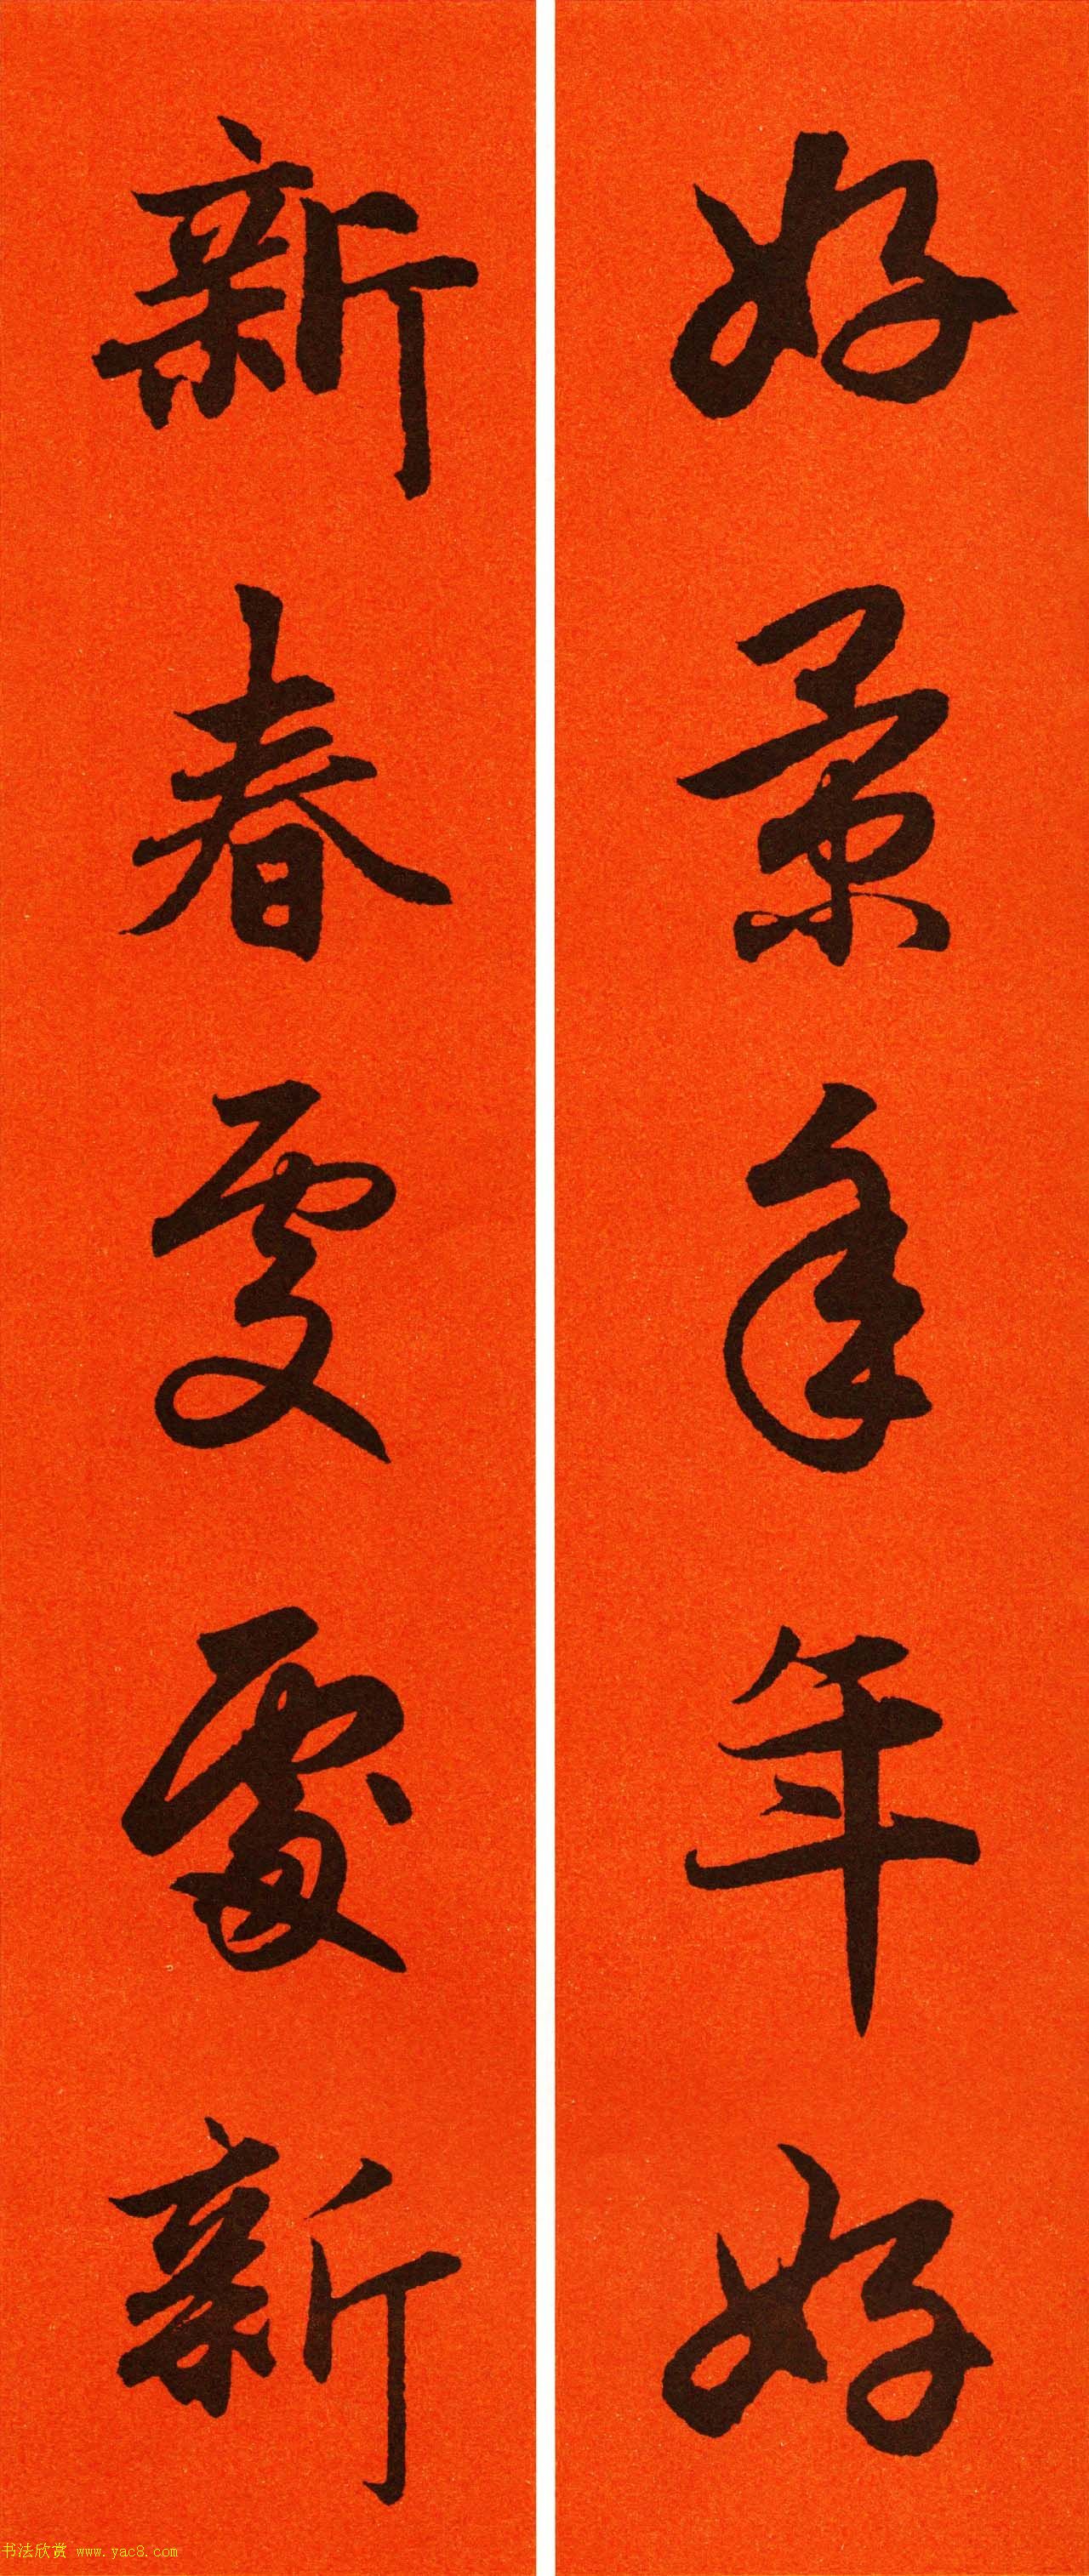 好景年年好
新春處處新
书法欣赏 www.yac8.com